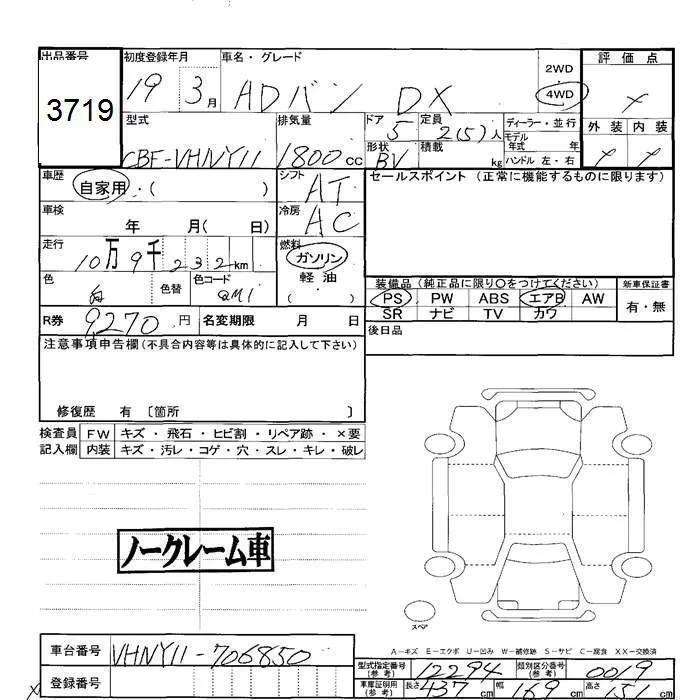 出品番号 初度登録年月 車名・グレード 評価点
3719 19 3月 ADバン DX 2WD 4WD
型式 排気量 ドア 定員 ディーラー・並行 外装 内装
CBF-VHNY11 1800cc 5 2(5)人 モデル年式 年
形状 BV 積載 kg ハンドル 左・右
車歴 自家用・( ) シフト AT セールスポイント (正常に機能するものに限ります)
車検 年 月( 日) 冷房 AC
走行 10万9千232km 燃料 ガソリン
軽油
( )
色 白 色替 色コード QM1
装備品(純正品に限り○をつけてください) 新車保証書
PS PW ABS エアB AW 有・無
SR ナビ TV カワ
R券 9270円 名変期限 月 日 後日品
注意事項申告欄(不具合内容等は具体的に記入して下さい)
修復歴 有 〔箇所 〕
検査員 FW キズ・飛石・ヒビ割・リペア跡・×要
記入欄 内装 キズ・汚レ・コゲ・穴・スレ・キレ・破レ
ノークレーム車
スペア
A－キズ E－エクボ U－凹み W－補修跡 S－サビ C－腐食 XX－交換済
車台番号 VHNY11-706850
登録番号
型式指定番号(参考) 12294 類別区分番号(参考) 0019
車庫証明用(参考) 長さ 437cm 幅 169cm 高さ 151cm